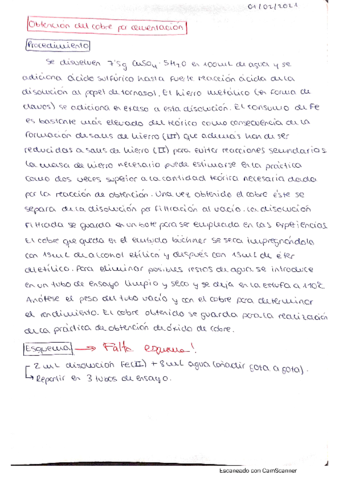 01/02/2021
Obtención del cobre por cementación
Procedimiento
Se disuelven 7'5g CuSO4·5H2O en 100mL de agua y se
adiciona ácido sulfúrico hasta fuerte reacción ácida de la
disolución al papel de tornasol. El hierro metálico (en forma de
clavos) se adiciona en exceso a esta disolución. El consumo de Fe
es bastante más elevado del teórico como consecuencia de la
formación de sales de hierro (III) que además han de ser
reducidas a sales de hierro (II) para evitar reacciones secundarias
la masa de hierro necesario puede estimarse en la práctica
como dos veces superior a la cantidad teórica necesaria dada
por la reacción de obtención. Una vez obtenido el cobre éste se
separa de la disolución por filtración al vacío. La disolución
filtrada se guarda en un bote para ser empleada en las experiencias.
El cobre que queda en el embudo büchner se seca impregnándolo
con 15mL de alcohol etílico y después con 15mL de éter
dietílico. Para eliminar posibles restos de agua se introduce
en un tubo de ensayo limpio y seco y se deja en la estufa a 110ºC
Anótese el peso del tubo vacío y con el cobre para determinar
el rendimiento. El cobre obtenido se guarda para la realización
de la práctica de obtención de óxido de cobre.
Esquema → Falta esquema!
2 mL disolución Fe(II) + 8mL agua (añadir gota a gota).
↳ Repartir en 3 tubos de ensayo.
Escaneado con CamScanner